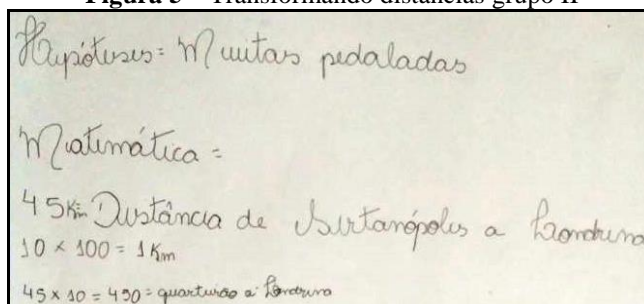 Figura 3 – Transformando distâncias grupo II
Hipóteses = Muitas pedaladas
Matemática =
45 Km = Distância de Sertanópolis a Londrina
10 x 100 = 1 Km
45 x 10 = 450 = quarteirão a Londrina